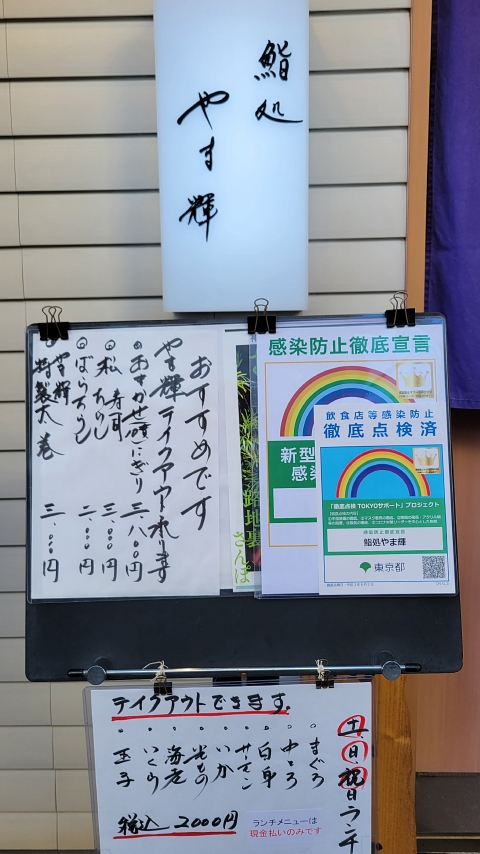 鮨処
やま輝
おすすめです
やま輝テイクアウトお寿司
おまかせ握にぎり 三.〇〇〇円
松 ちらし 三.〇〇〇円
ばらちらし 二.〇〇〇円
特製太巻 三.〇〇〇円
路地裏
さんぽ
感染防止徹底宣言
新型
感染
飲食店等感染防止
徹底点検済
「徹底点検 TOKYOサポート」プロジェクト
感染防止徹底宣言
鮨処やま輝
東京都
テイクアウトできます。
土、日、祝日ランチ
まぐろ
中とろ
白身
サーモン
いか
光もの
海老
いくら
玉子
税込 2000円
ランチメニューは
現金払いのみです